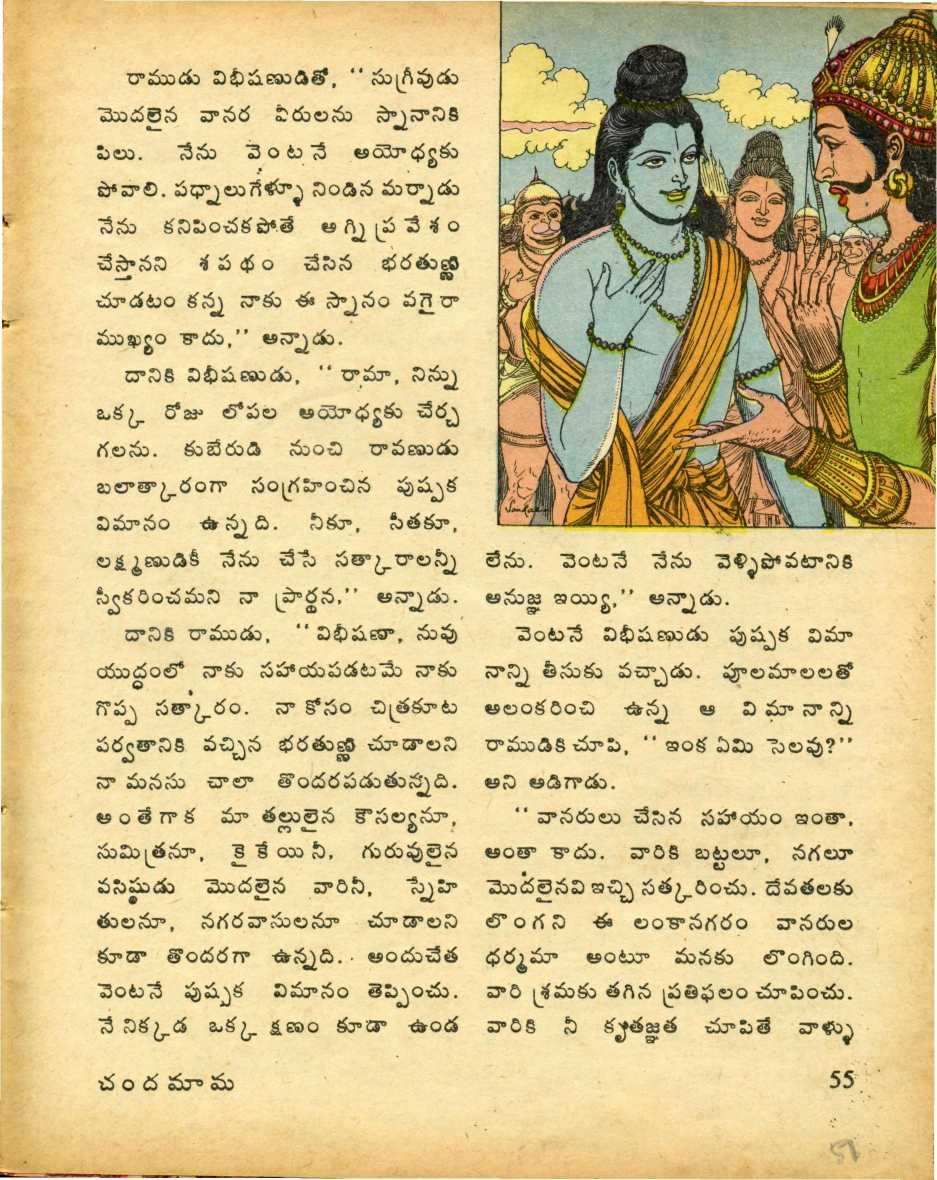 రాముడు విభీషణుడితో, ‘‘సుగ్రీవుడు
మొదలైన వానర వీరులను స్నానానికి
పిలు. నేను వెంటనే అయోధ్యకు
పోవాలి. పధ్నాలుగేళ్ళూ నిండిన మర్నాడు
నేను కనిపించకపోతే అగ్ని ప్రవేశం
చేస్తానని శపథం చేసిన భరతుణ్ణి
చూడటం కన్న నాకు ఈ స్నానం వగైరా
ముఖ్యం కాదు,’’ అన్నాడు.
దానికి విభీషణుడు, ‘‘రామా, నిన్ను
ఒక్క రోజు లోపల అయోధ్యకు చేర్చ
గలను. కుబేరుడి నుంచి రావణుడు
బలాత్కారంగా సంగ్రహించిన పుష్పక
విమానం ఉన్నది. నీకూ, సీతకూ,
లక్ష్మణుడికీ నేను చేసే సత్కారాలన్నీ
స్వీకరించమని నా ప్రార్థన,’’ అన్నాడు.
దానికి రాముడు, ‘‘విభీషణా, నువు
యుద్ధంలో నాకు సహాయపడటమే నాకు
గొప్ప సత్కారం. నా కోసం చిత్రకూట
పర్వతానికి వచ్చిన భరతుణ్ణి చూడాలని
నా మనసు చాలా తొందరపడుతున్నది.
అంతేగాక మా తల్లులైన కౌసల్యనూ,
సుమిత్రనూ, కైకేయినీ, గురువులైన
వసిష్ఠుడు మొదలైన వారినీ, స్నేహి
తులనూ, నగరవాసులనూ చూడాలని
కూడా తొందరగా ఉన్నది. అందుచేత
వెంటనే పుష్పక విమానం తెప్పించు.
నేనిక్కడ ఒక్క క్షణం కూడా ఉండ
లేను. వెంటనే నేను వెళ్ళిపోవటానికి
అనుజ్ఞ ఇయ్యి,’’ అన్నాడు.
వెంటనే విభీషణుడు పుష్పక విమా
నాన్ని తీసుకు వచ్చాడు. పూలమాలలతో
అలంకరించి ఉన్న ఆ విమానాన్ని
రాముడికి చూపి, ‘‘ఇంక ఏమి సెలవు?’’
అని అడిగాడు.
‘‘వానరులు చేసిన సహాయం ఇంతా,
అంతా కాదు. వారికి బట్టలూ, నగలూ
మొదలైనవి ఇచ్చి సత్కరించు. దేవతలకు
లొంగని ఈ లంకానగరం వానరుల
ధర్మమా అంటూ మనకు లొంగింది.
వారి శ్రమకు తగిన ప్రతిఫలం చూపించు.
వారికి నీ కృతజ్ఞత చూపితే వాళ్ళు
చందమామ
55
51